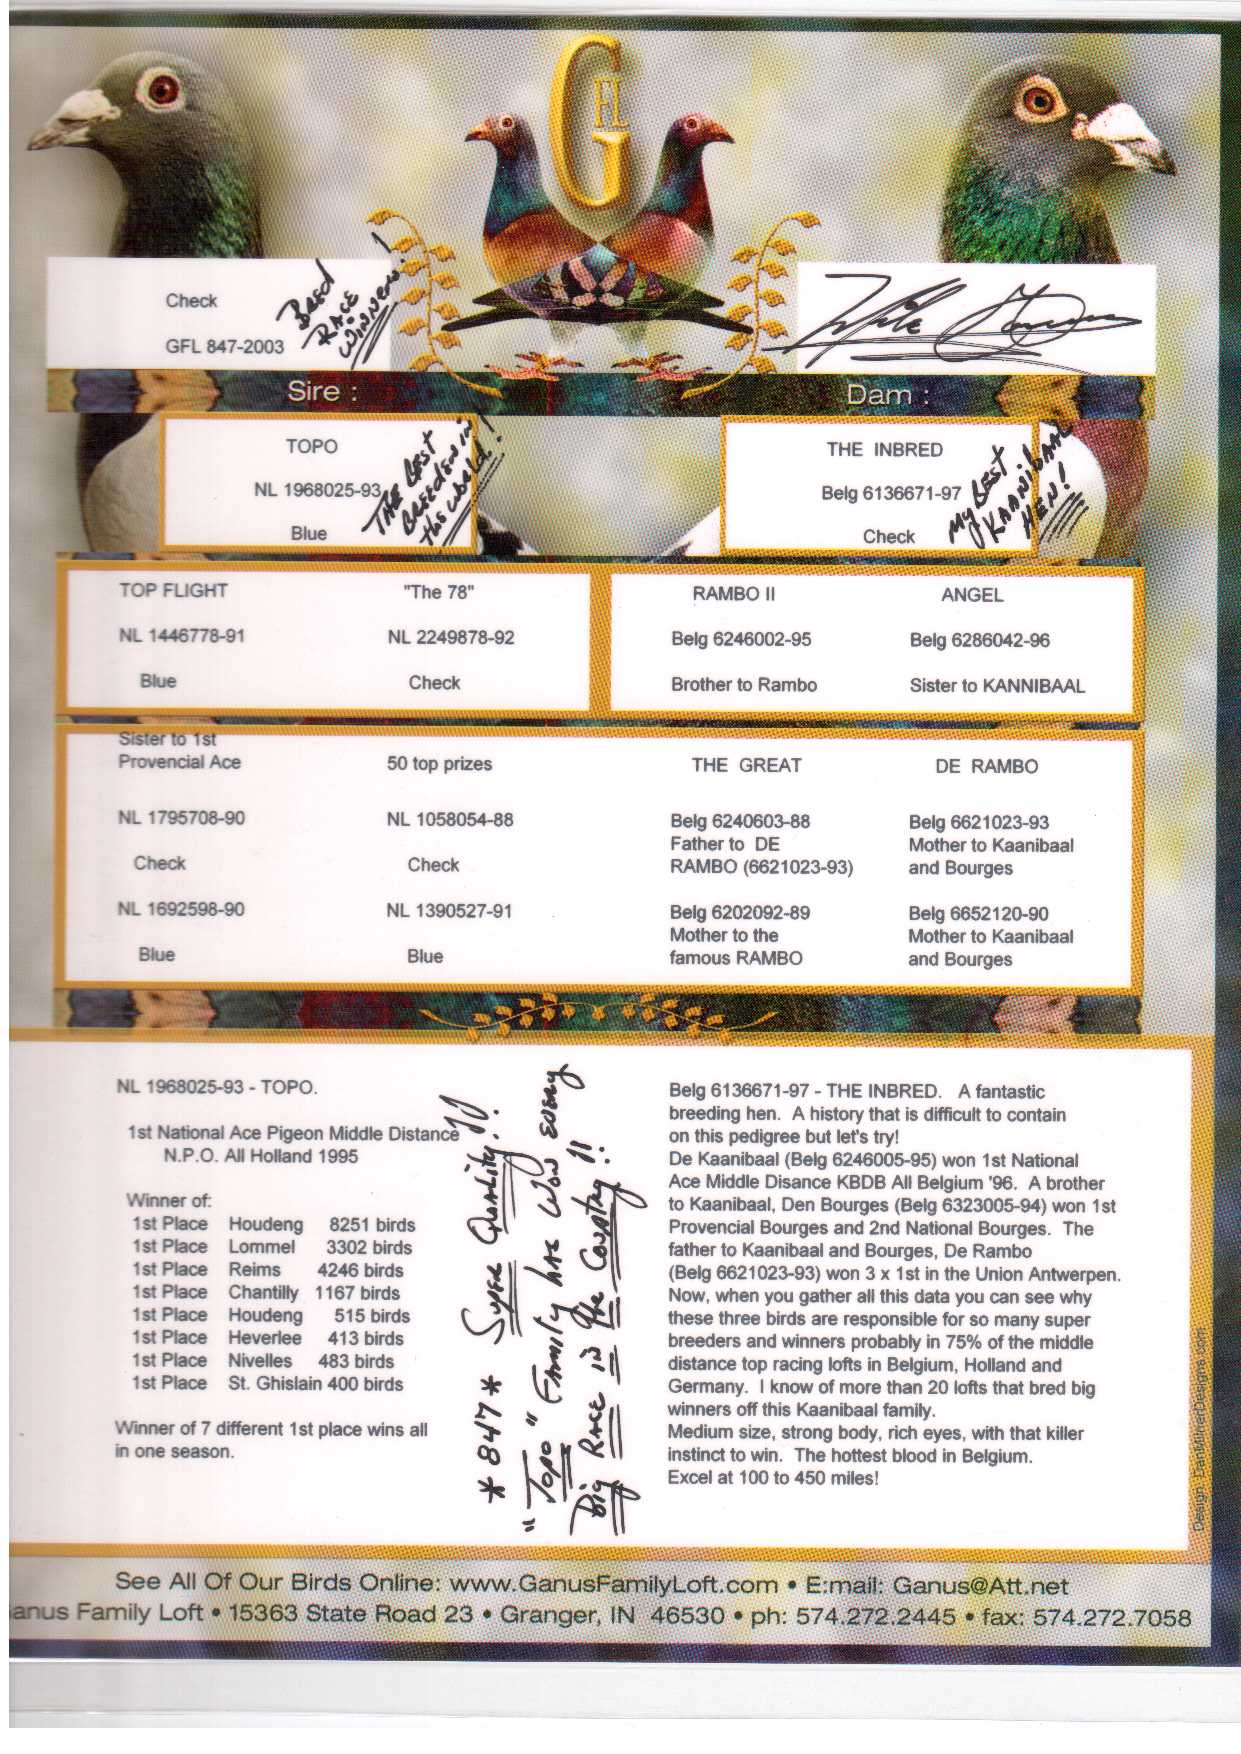 G FL
Check
GFL 847-2003
Breed
Race
Winners!
Mike Ganus
Sire :
Dam :
TOPO
NL 1968025-93
Blue
The Best
Breeder in
the World!
THE INBRED
Belg 6136671-97
Check
My Best
Kaanibaal
Hen!
TOP FLIGHT
NL 1446778-91
Blue
"The 78"
NL 2249878-92
Check
RAMBO II
Belg 6246002-95
Brother to Rambo
ANGEL
Belg 6286042-96
Sister to KANNIBAAL
Sister to 1st
Provencial Ace
NL 1795708-90
Check
NL 1692598-90
Blue
50 top prizes
NL 1058054-88
Check
NL 1390527-91
Blue
THE GREAT
Belg 6240603-88
Father to DE
RAMBO (6621023-93)
Belg 6202092-89
Mother to the
famous RAMBO
DE RAMBO
Belg 6621023-93
Mother to Kaanibaal
and Bourges
Belg 6652120-90
Mother to Kaanibaal
and Bourges
NL 1968025-93 - TOPO.
1st National Ace Pigeon Middle Distance
N.P.O. All Holland 1995
Winner of:
1st Place Houdeng 8251 birds
1st Place Lommel 3302 birds
1st Place Reims 4246 birds
1st Place Chantilly 1167 birds
1st Place Houdeng 515 birds
1st Place Heverlee 413 birds
1st Place Nivelles 483 birds
1st Place St. Ghislain 400 birds
Winner of 7 different 1st place wins all
in one season.
* 847 * Super Quality!!
"Topo" Family has won every
Big Race in the Country!!
Belg 6136671-97 - THE INBRED. A fantastic
breeding hen. A history that is difficult to contain
on this pedigree but let's try!
De Kaanibaal (Belg 6246005-95) won 1st National
Ace Middle Disance KBDB All Belgium '96. A brother
to Kaanibaal, Den Bourges (Belg 6323005-94) won 1st
Provencial Bourges and 2nd National Bourges. The
father to Kaanibaal and Bourges, De Rambo
(Belg 6621023-93) won 3 x 1st in the Union Antwerpen.
Now, when you gather all this data you can see why
these three birds are responsible for so many super
breeders and winners probably in 75% of the middle
distance top racing lofts in Belgium, Holland and
Germany. I know of more than 20 lofts that bred big
winners off this Kaanibaal family.
Medium size, strong body, rich eyes, with that killer
instinct to win. The hottest blood in Belgium.
Excel at 100 to 450 miles!
Design : DanMilnerDesigns.com
See All Of Our Birds Online: www.GanusFamilyLoft.com • E:mail: Ganus@Att.net
anus Family Loft • 15363 State Road 23 • Granger, IN 46530 • ph: 574.272.2445 • fax: 574.272.7058